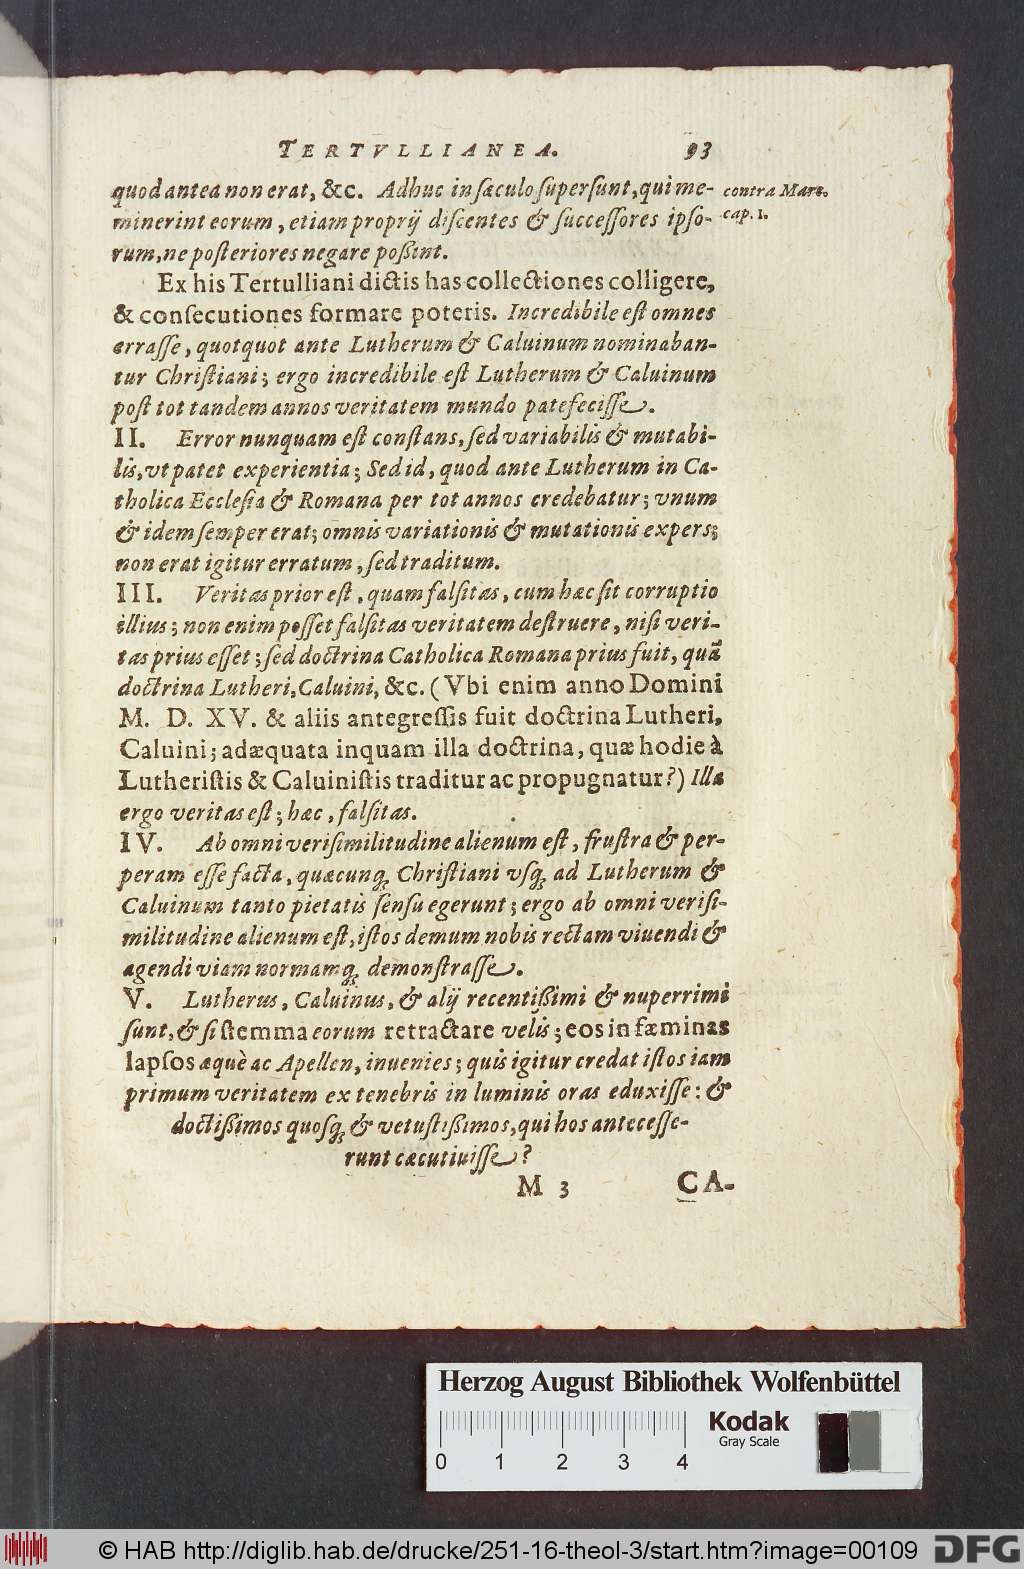 TERTVLLIANEA. 93
quod antea non erat, &c. Adhuc in sæculo supersunt, qui me-
contra Marc.
minerint eorum, etiam proprij discentes & successores ipso-
cap. 1.
rum, ne posteriores negare poßint.
Ex his Tertulliani dictis has collectiones colligere,
& consecutiones formare poteris. Incredibile est omnes
errasse, quotquot ante Lutherum & Caluinum nominaban-
tur Christiani; ergo incredibile est Lutherum & Caluinum
post tot tandem annos veritatem mundo patefecisse.
II. Error nunquam est constans, sed variabilis & mutabi-
lis, vt patet experientia; Sed id, quod ante Lutherum in Ca-
tholica Ecclesia & Romana per tot annos credebatur; vnum
& idem semper erat; omnis variationis & mutationis expers;
non erat igitur erratum, sed traditum.
III. Veritas prior est, quam falsitas, cum hæc sit corruptio
illius; non enim posset falsitas veritatem destruere, nisi veri-
tas prius esset; sed doctrina Catholica Romana prius fuit, quã
doctrina Lutheri, Caluini, &c. (Vbi enim anno Domini
M. D. XV. & aliis antegressis fuit doctrina Lutheri,
Caluini; adæquata inquam illa doctrina, quæ hodie à
Lutheristis & Caluinistis traditur ac propugnatur?) Illa
ergo veritas est; hæc, falsitas.
IV. Ab omni verisimilitudine alienum est, frustra & per-
peram esse facta, quæcunq; Christiani vsq; ad Lutherum &
Caluinum tanto pietatis sensu egerunt; ergo ab omni verisi-
militudine alienum est, istos demum nobis rectam viuendi &
agendi viam normamq; demonstrasse.
V. Lutherus, Caluinus, & alij recentißimi & nuperrimi
sunt, & si stemma eorum retractare velis; eos in fæminas
lapsos æquè ac Apellen, inuenies; quis igitur credat istos iam
primum veritatem ex tenebris in luminis oras eduxisse: &
doctißimos quosq; & vetustißimos, qui hos antecesse-
runt cæcutiuisse?
M 3 CA-
Herzog August Bibliothek Wolfenbüttel
Kodak
Gray Scale
0 1 2 3 4
© HAB http://diglib.hab.de/drucke/251-16-theol-3/start.htm?image=00109 DFG